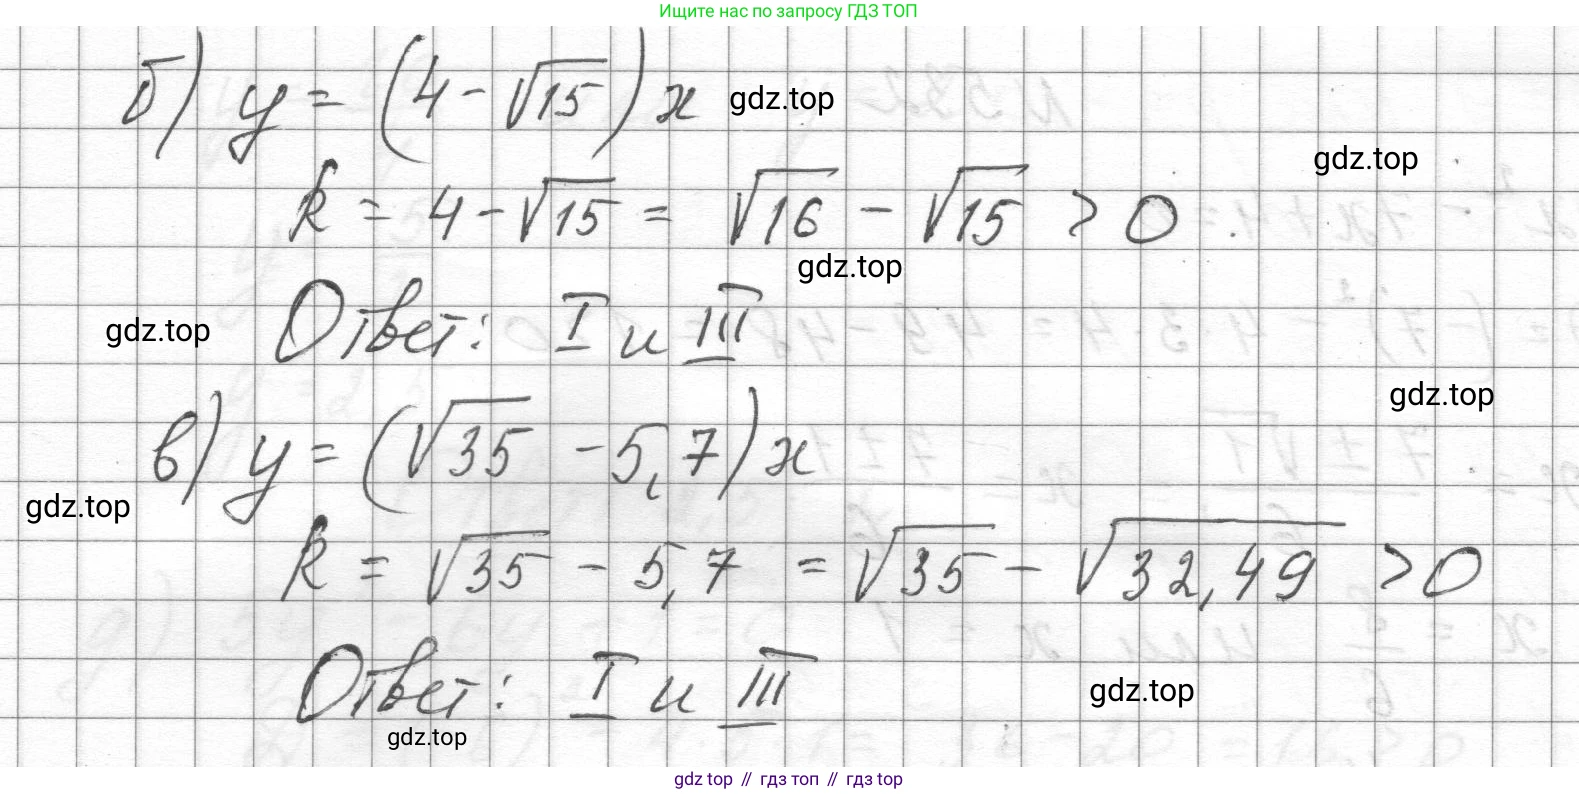 Ищите нас по запросу ГДЗ ТОП
б) y = (4 - √15) x
gdz.top
gdz.top
k = 4 - √15 = √16 - √15 > 0
gdz.top
Ответ: I и III
gdz.top
gdz.top
в) y = (√35 - 5,7) x
gdz.top
k = √35 - 5,7 = √35 - √32,49 > 0
Ответ: I и III
gdz.top
gdz.top
gdz top // гдз топ // гдз top